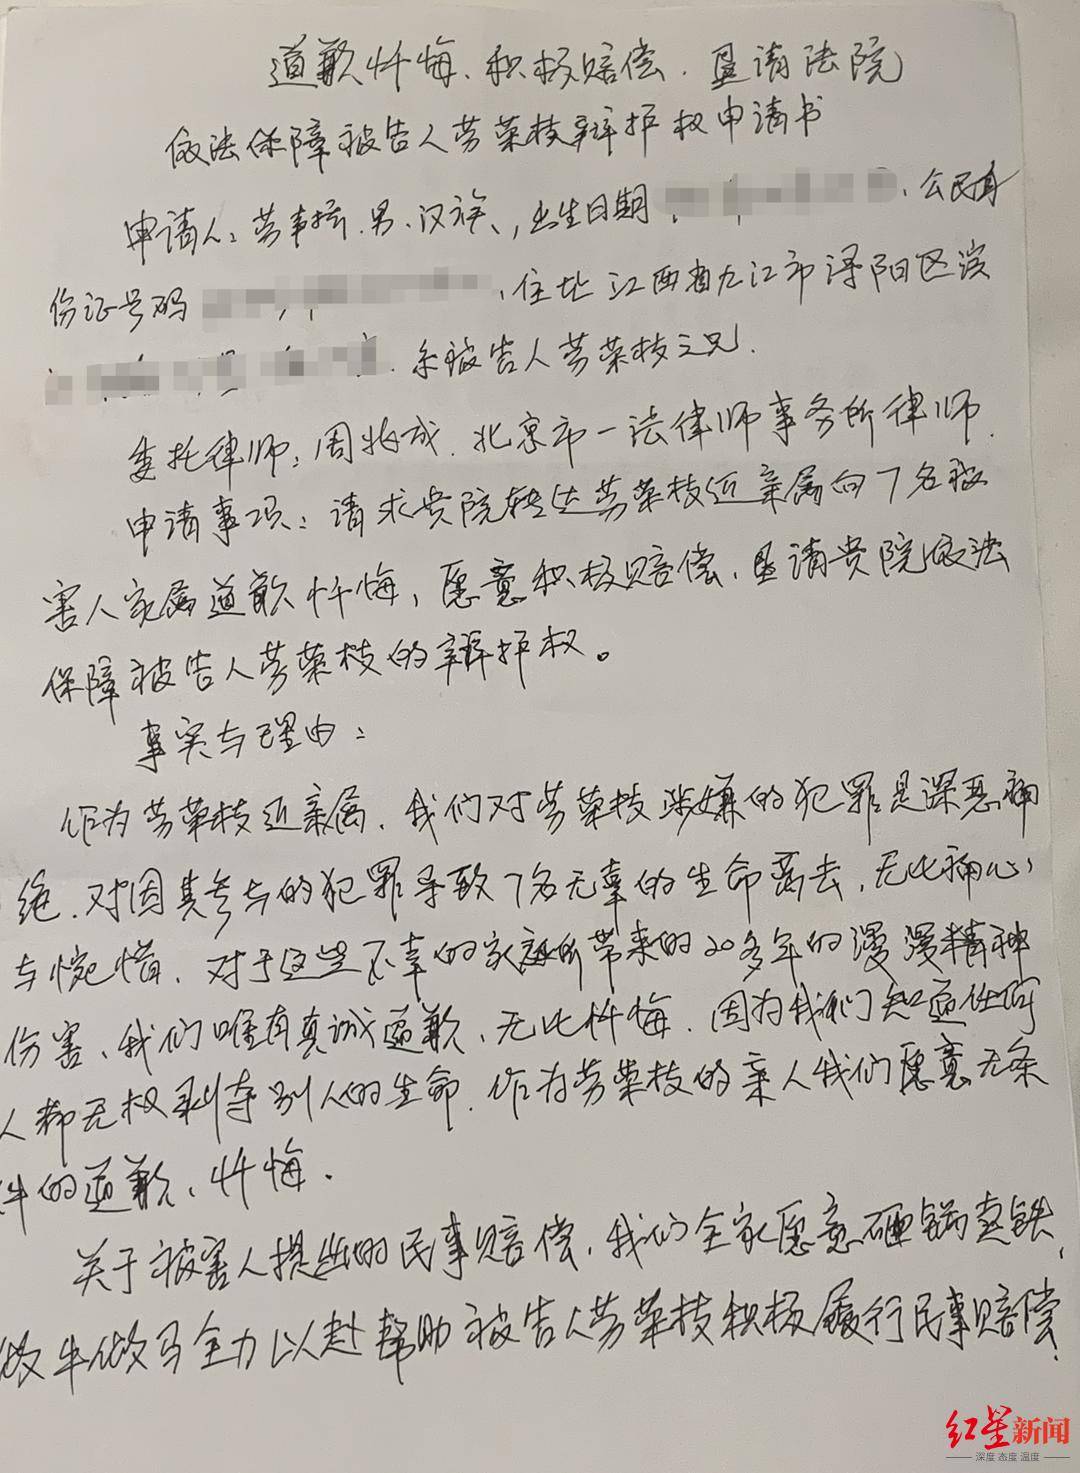 道歉忏悔、积极赔偿、恳请法院
依法保障被告人劳荣枝辩护权申请书
申请人：劳声桥、男、汉族、，出生日期、公民身
份证号码、住址江西省九江市浔阳区滨
系被告人劳荣枝之兄.
委托律师：周兆成、北京市一法律师事务所律师.
申请事项：请求贵院转达劳荣枝近亲属向7名被
害人家属道歉忏悔，愿意积极赔偿、恳请贵院依法
保障被告人劳荣枝的辩护权。
事实与理由：
作为劳荣枝近亲属、我们对劳荣枝涉嫌的犯罪是深恶痛
绝、对因其参与的犯罪导致7名无辜的生命离去、无比痛心
与惋惜、对于这些不幸的家庭所带来的20多年的漫漫精神
伤害、我们唯有真诚道歉、无比忏悔、因为我们知道任何
人都无权剥夺别人的生命、作为劳荣枝的亲人我们愿意无条
件的道歉、忏悔.
关于被害人提出的民事赔偿、我们全家愿意砸锅卖铁、
做牛做马全力以赴帮助被告人劳荣枝积极履行民事赔偿.
红星新闻
深度 态度 温度